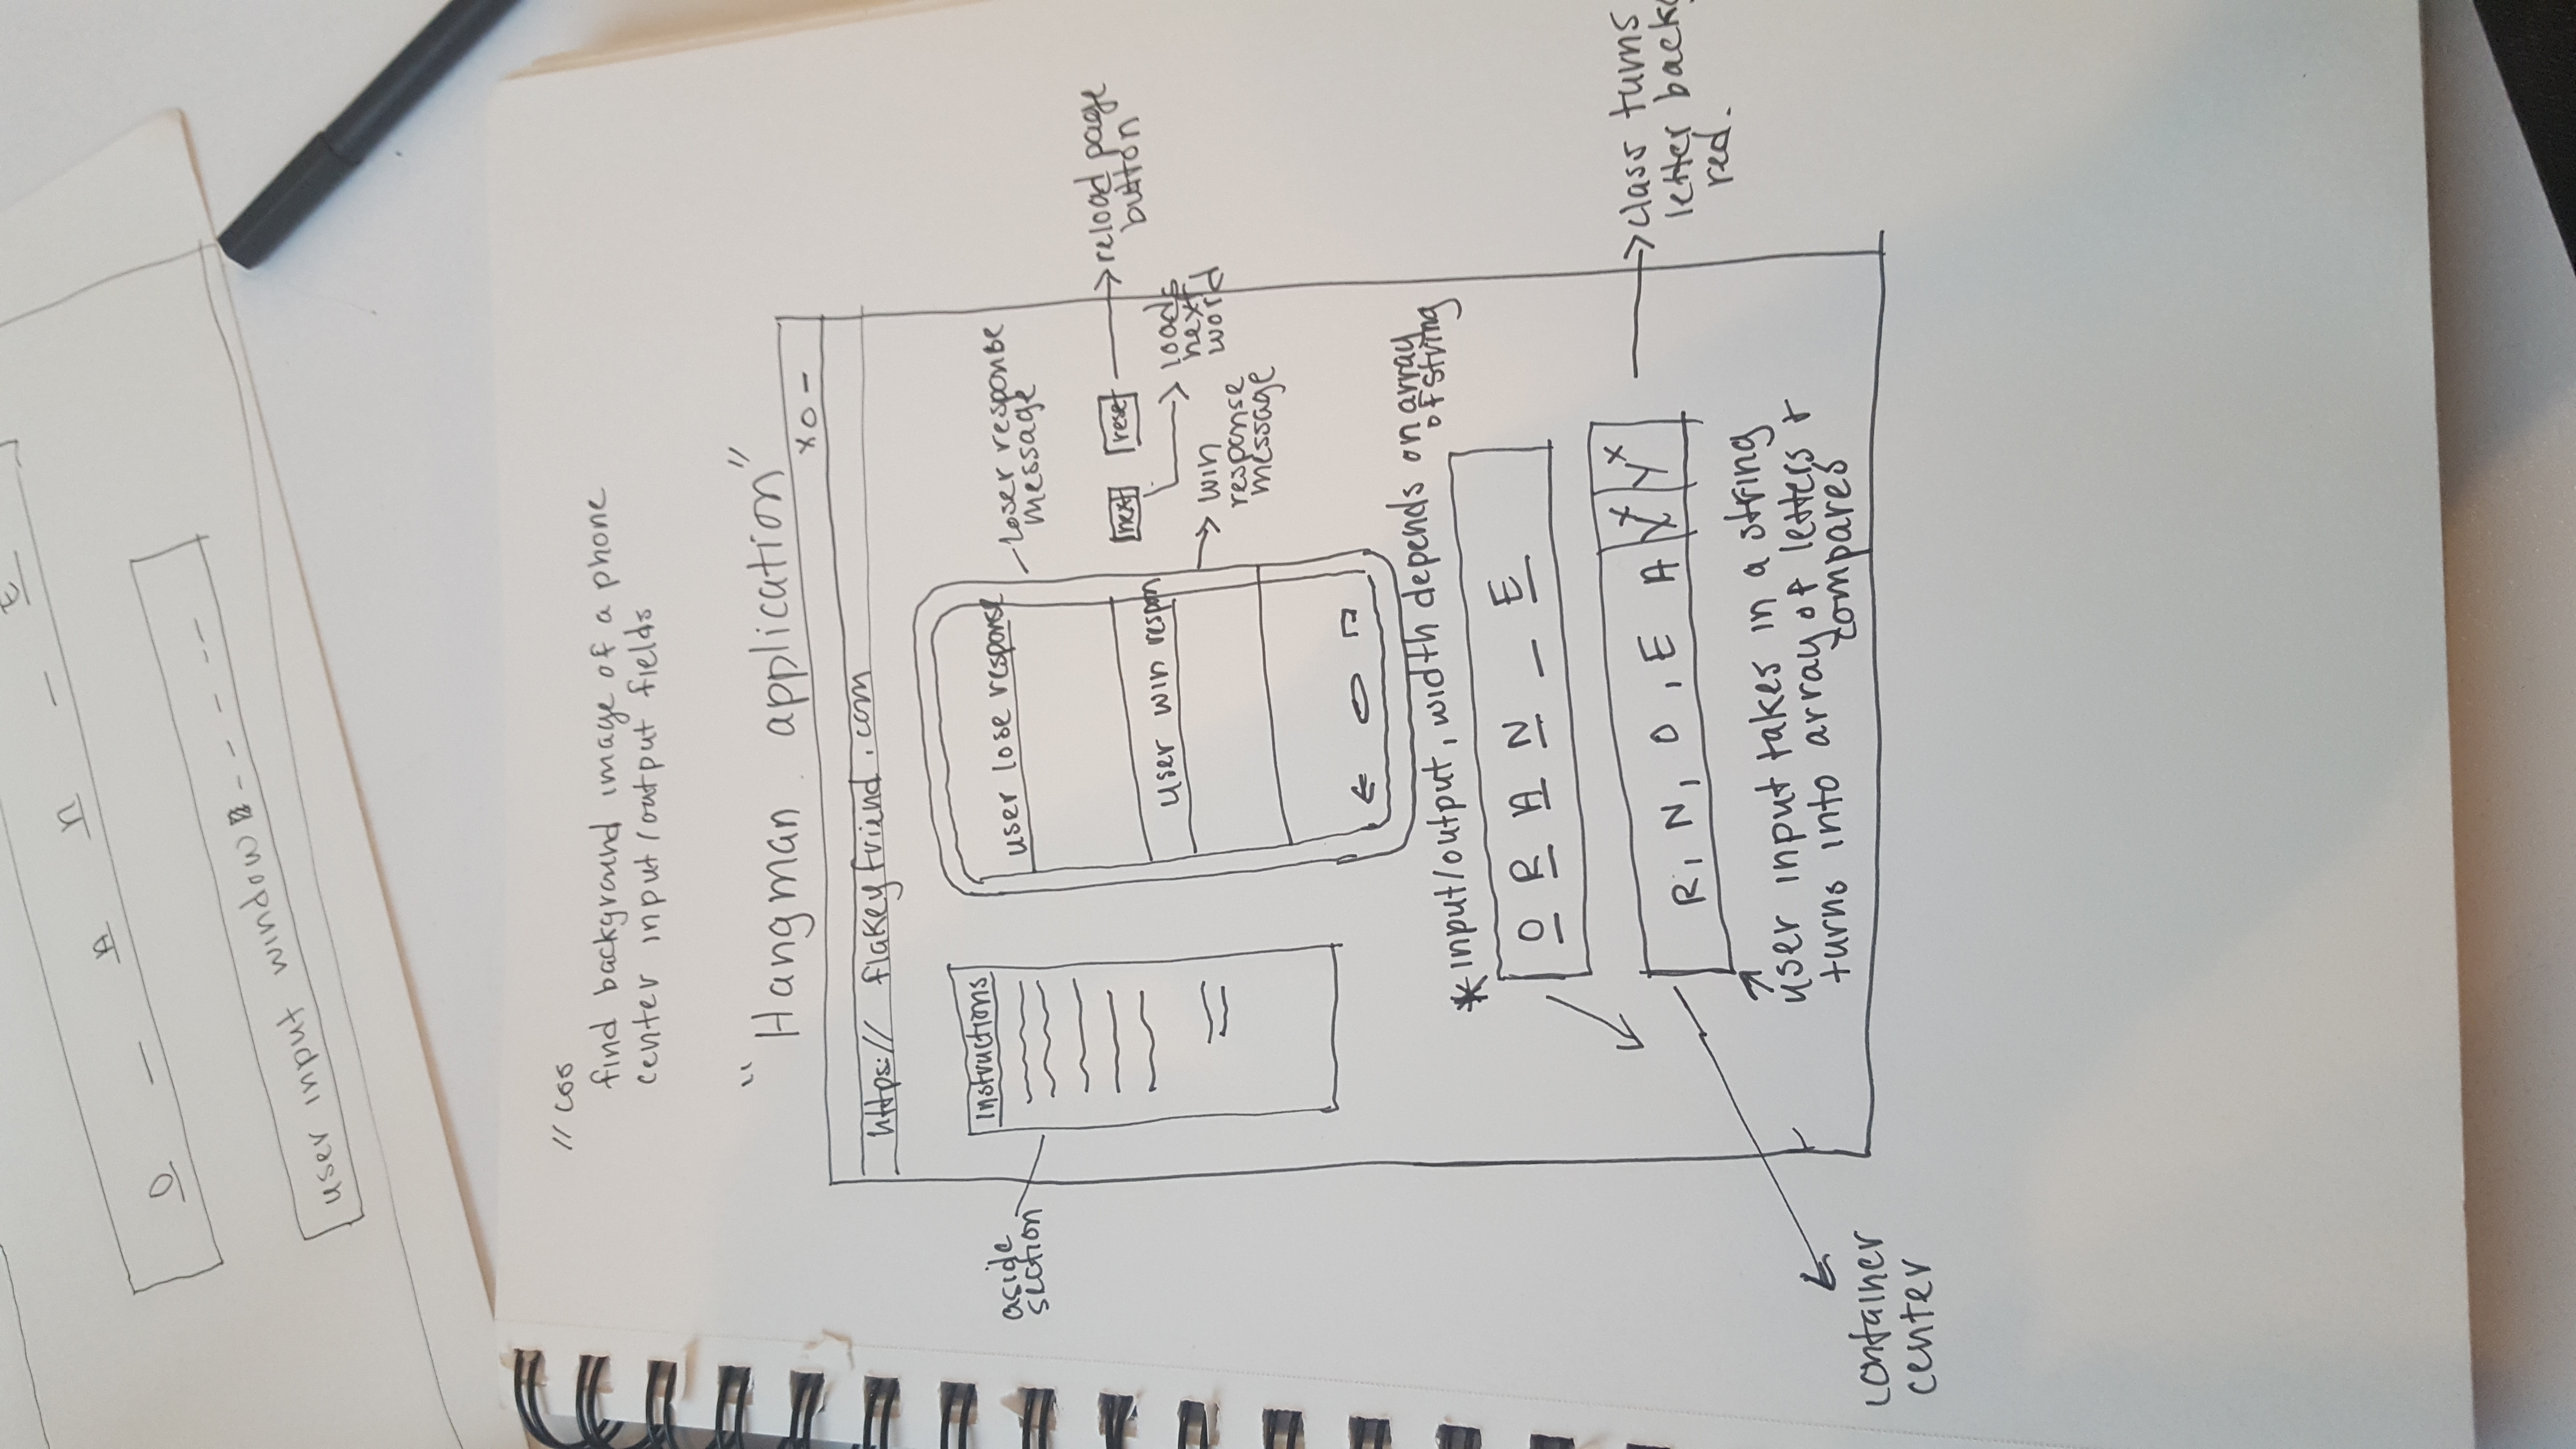 O _ A n _ E
user input window
// css
find background image of a phone
center input/output fields
"Hangman application"
x o -
https:// flakeyfriend.com
instructions
aside
section
user lose response
loser response
message
next
reset
reload page
button
loads
next
word
user win respon
win
response
message
* input/output, width depends on array
of string
O R A N _ E
R, N, O, E A X Y x
class turns
letter back
red.
user input takes in a string
turns into array of letters &
compares
container
center